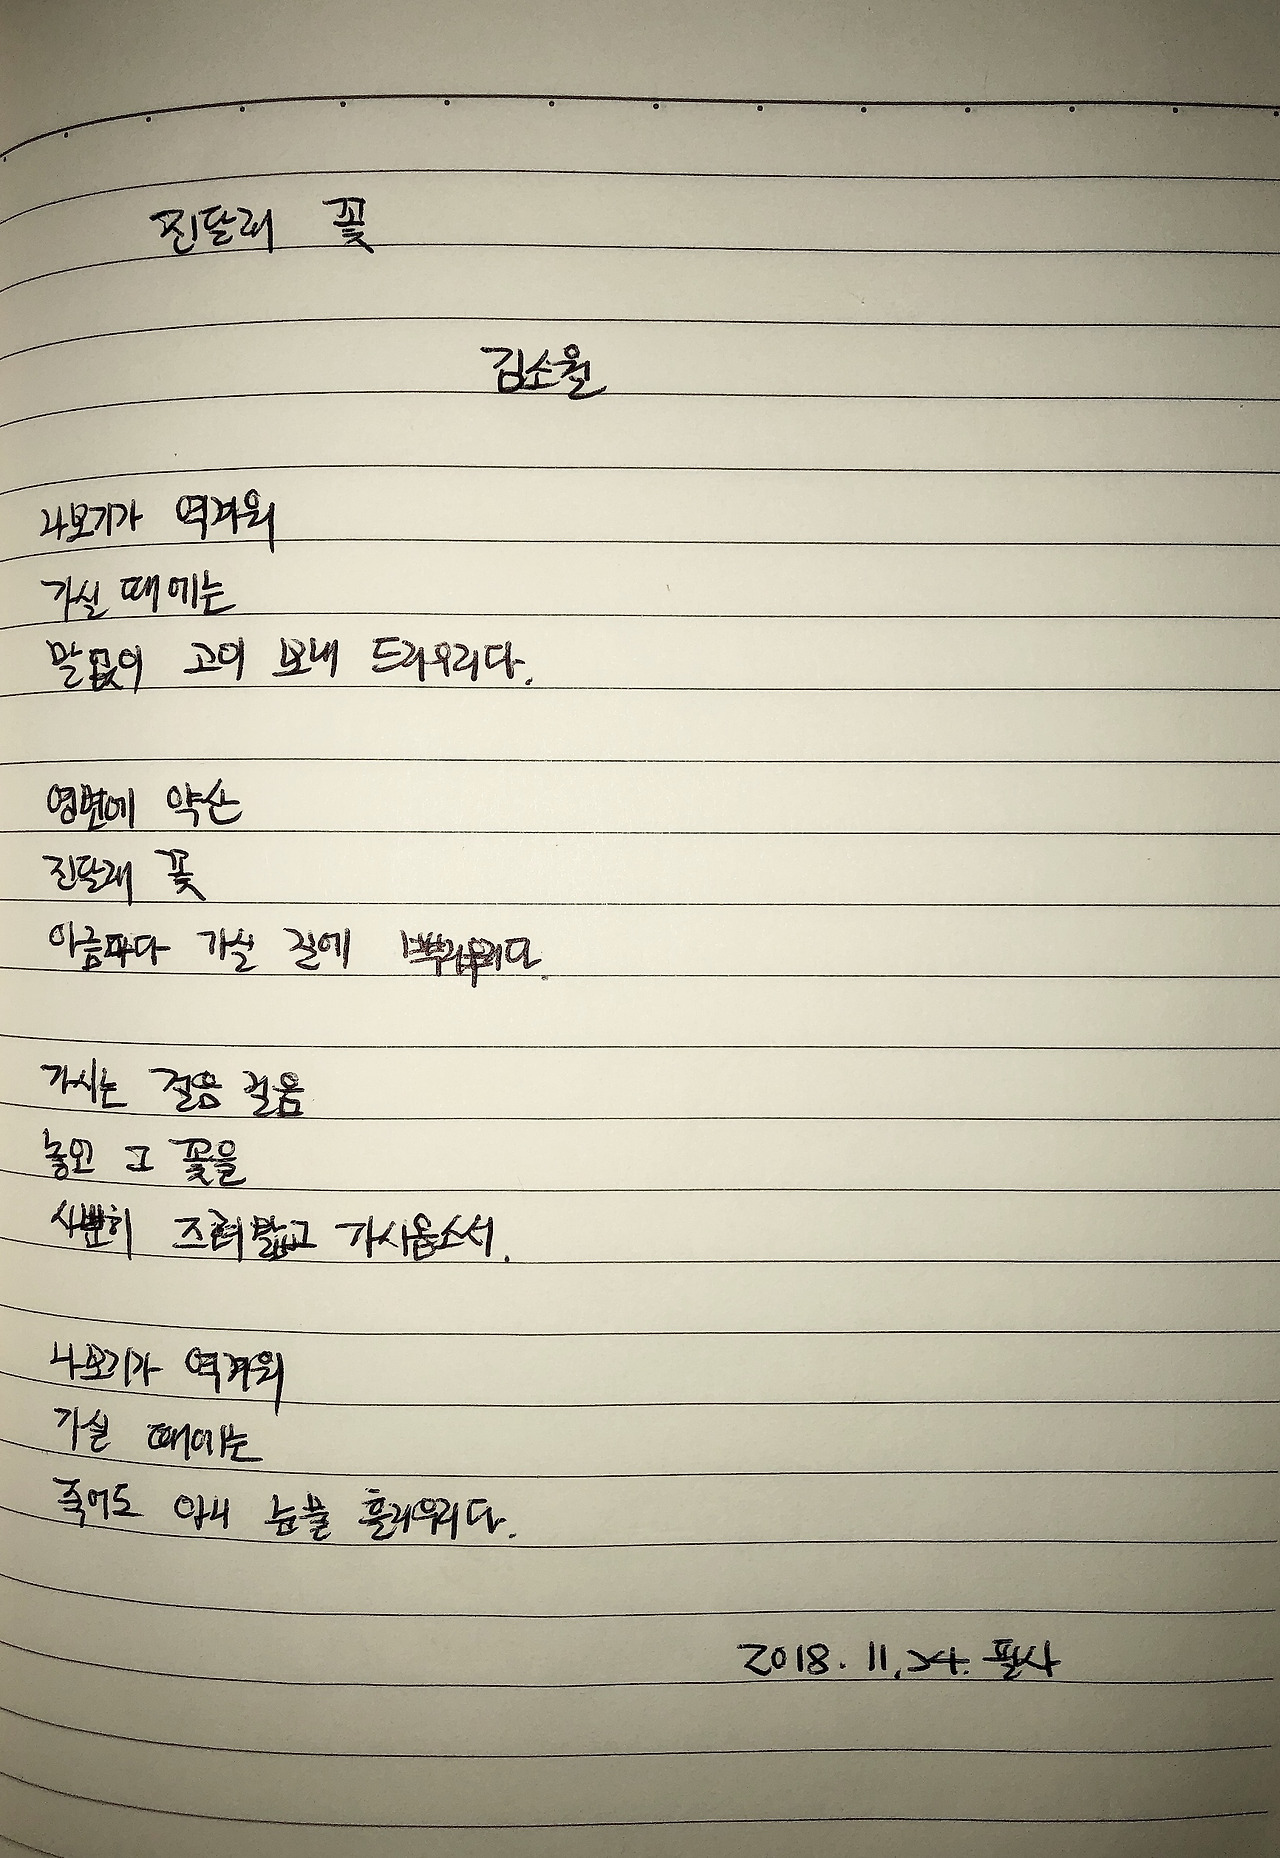 진달래 꽃
김소월
나보기가 역겨워
가실 때에는
말없이 고이 보내 드리우리다.
영변에 약산
진달래 꽃
아름따다 가실 길에 뿌리우리다.
가시는 걸음 걸음
놓인 그 꽃을
사뿐히 즈려밟고 가시옵소서.
나보기가 역겨워
가실 때에는
죽어도 아니 눈물 흘리우리다.
2018. 11. 24. 필사